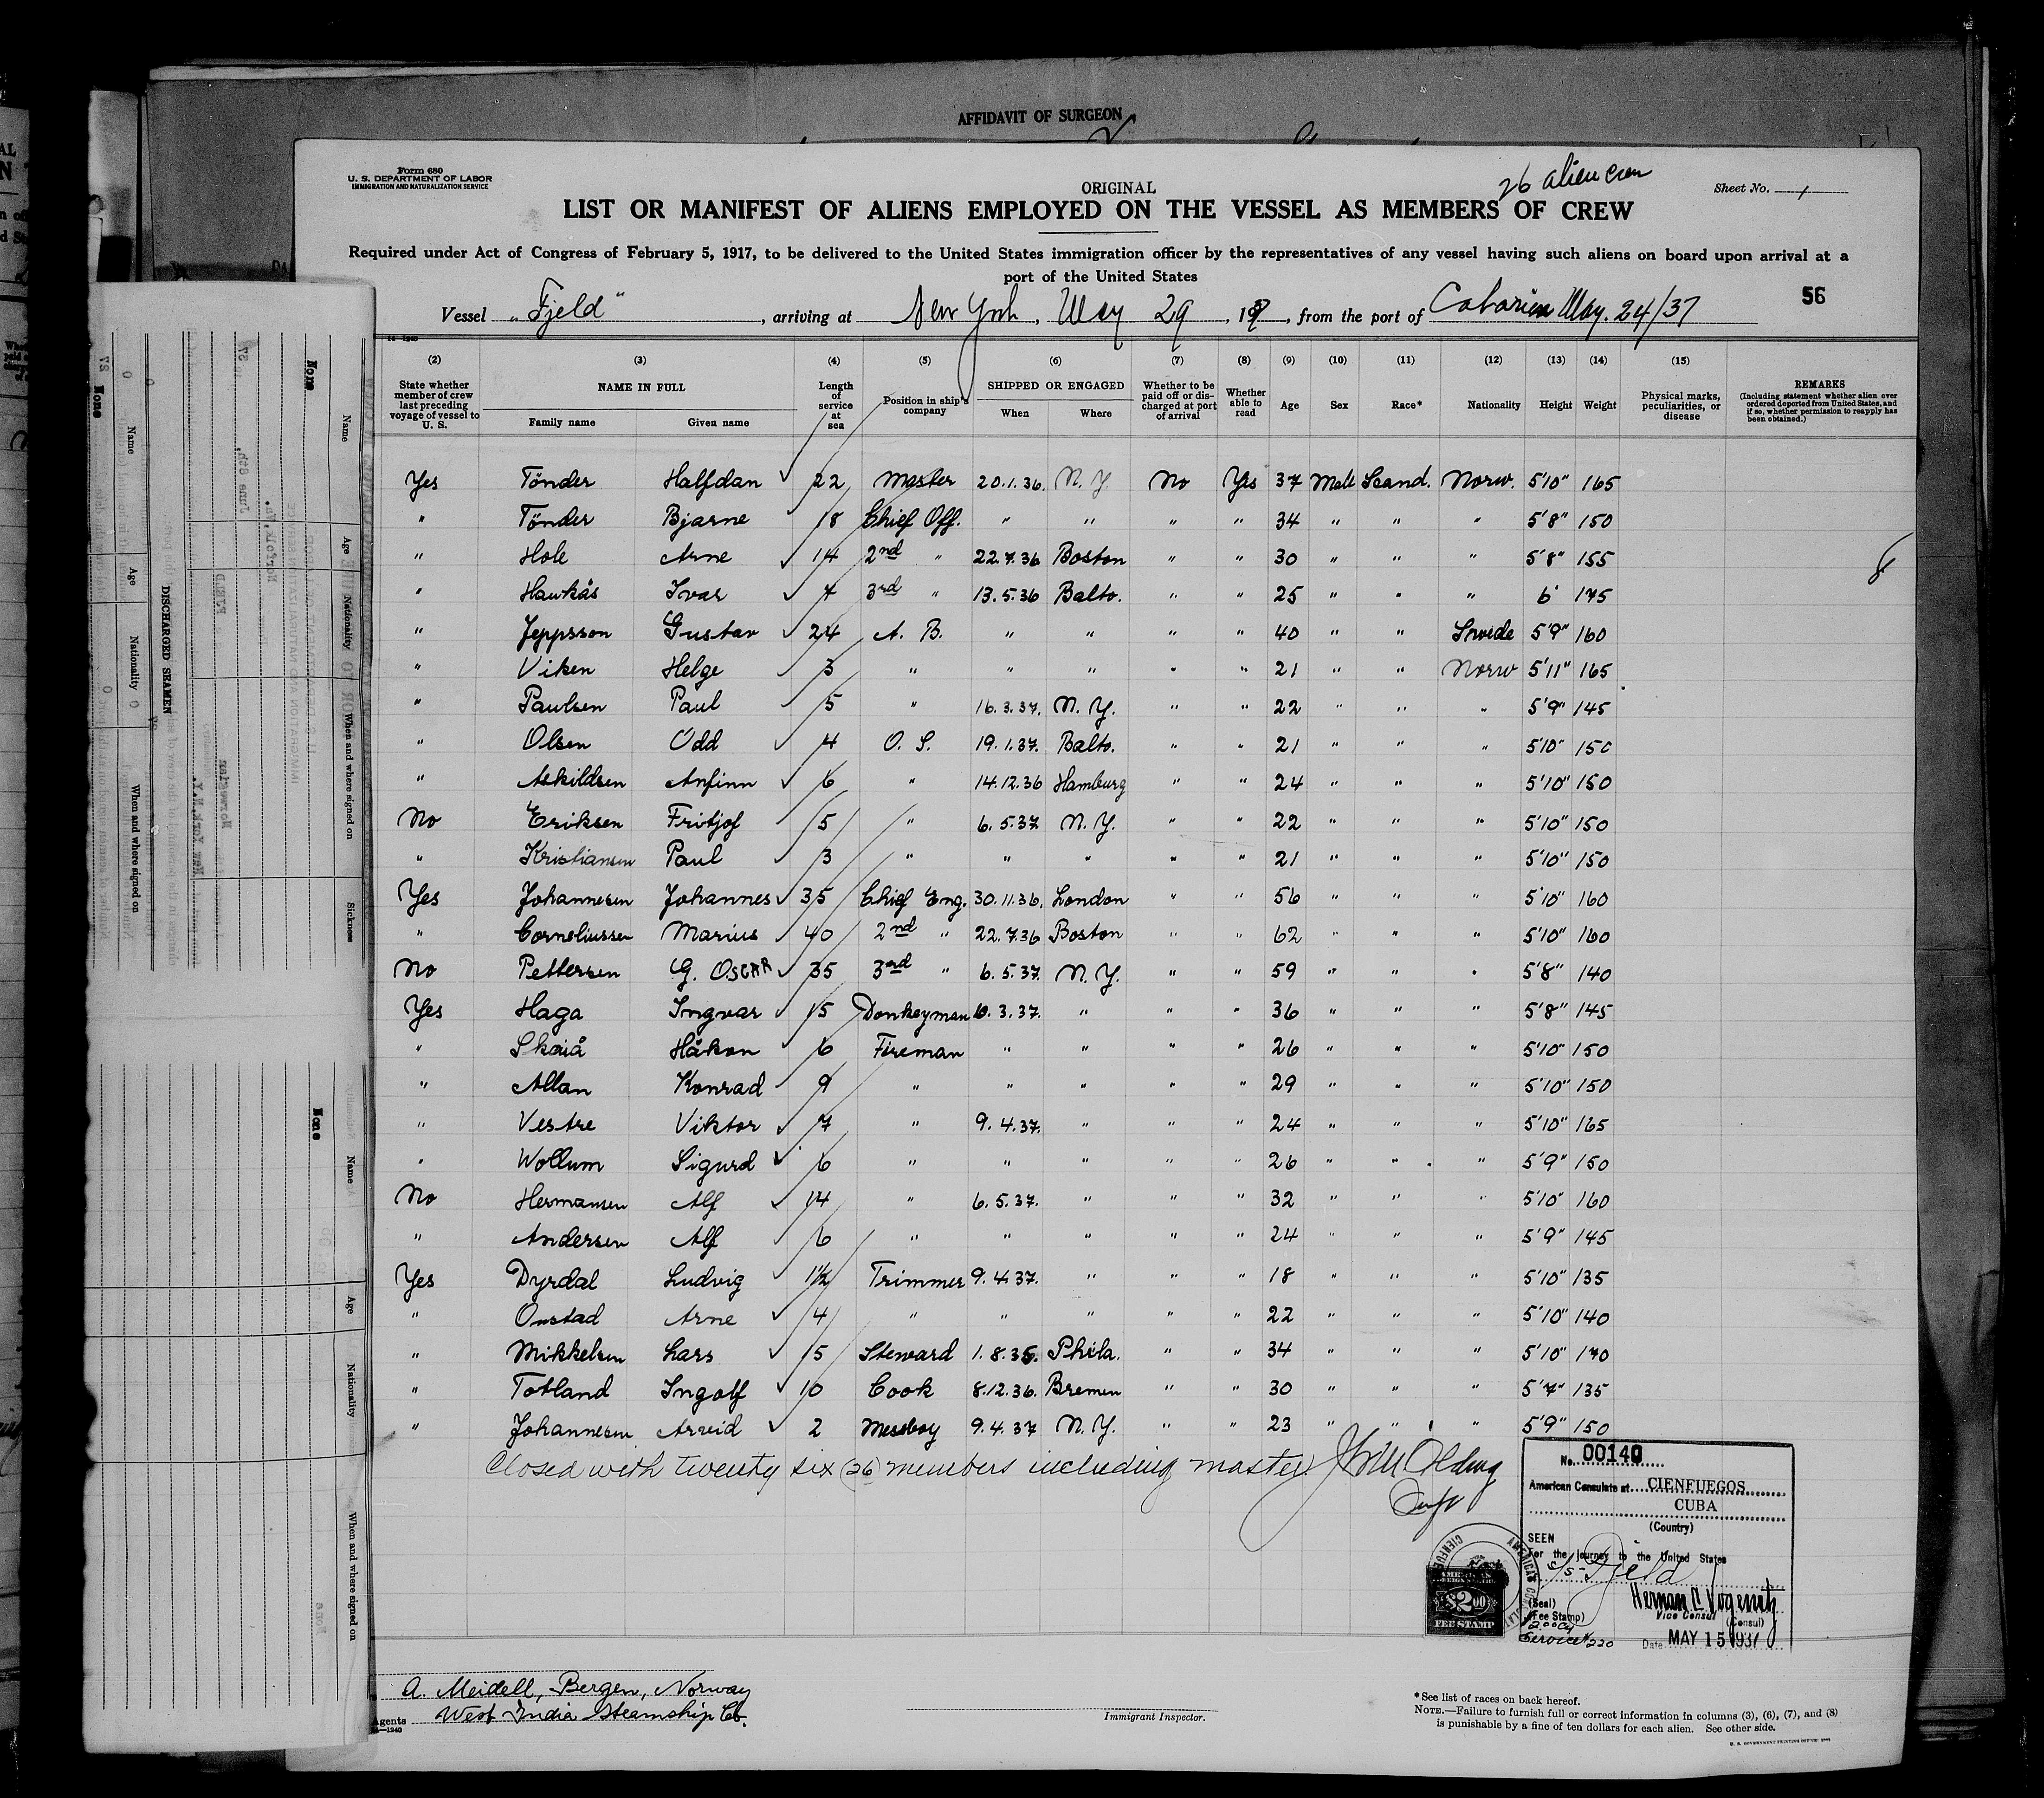 AFFIDAVIT OF SURGEON
Form 680
U. S. DEPARTMENT OF LABOR
IMMIGRATION AND NATURALIZATION SERVICE
ORIGINAL
26 alien crew
Sheet No. 1
LIST OR MANIFEST OF ALIENS EMPLOYED ON THE VESSEL AS MEMBERS OF CREW
Required under Act of Congress of February 5, 1917, to be delivered to the United States immigration officer by the representatives of any vessel having such aliens on board upon arrival at a
port of the United States
56
Vessel "Fjeld", arriving at New York, May 29, 1937, from the port of Cabarien May. 24/37
14—1240
(2) (3) (4) (5) (6) (7) (8) (9) (10) (11) (12) (13) (14) (15)
State whether member of crew last preceding voyage of vessel to U. S. NAME IN FULL Family name Given name Length of service at sea Position in ship's company SHIPPED OR ENGAGED When Where Whether to be paid off or discharged at port of arrival Whether able to read Age Sex Race* Nationality Height Weight Physical marks, peculiarities, or disease REMARKS (Including statement whether alien ever ordered deported from United States, and if so, whether permission to reapply has been obtained.)
Yes Tönder Halfdan 22 Master 20.1.36. N.Y. No Yes 37 Male Scand. Norw. 5'10" 165
" Tönder Bjarne 18 Chief Off. " " " " 34 " " " 5'8" 150
" Hole Arne 14 2nd " 22.7.36 Boston " " 30 " " " 5'8" 155
" Haukås Ivar 7 3rd " 13.5.36 Balto. " " 25 " " " 6' 175
" Jeppsson Gustav 24 A. B. " " " " 40 " " Swede 5'9" 160
" Viken Helge 3 " " " " " 21 " " Norw 5'11" 165
" Paulsen Paul 5 " 16.3.37. N.Y. " " 22 " " " 5'9" 145
" Olsen Odd 4 O. S. 19.1.37. Balto. " " 21 " " " 5'10" 150
" Askildsen Anfinn 6 " 14.12.36 Hamburg " " 24 " " " 5'10" 150
No Eriksen Fritjof 5 " 6.5.37 N.Y. " " 22 " " " 5'10" 150
" Kristiansen Paul 3 " " " " " 21 " " " 5'10" 150
Yes Johannesen Johannes 35 Chief Eng. 30.11.36. London " " 56 " " " 5'10" 160
" Corneliussen Marius 40 2nd " 22.7.36 Boston " " 62 " " " 5'10" 160
No Pettersen G. OSCAR 35 3rd " 6.5.37. N.Y. " " 59 " " " 5'8" 140
Yes Haga Ingvar 15 Donkeyman 10.3.37. " " " 36 " " " 5'8" 145
" Skaiå Håkon 6 Fireman " " " " 26 " " " 5'10" 150
" Allan Konrad 9 " " " " " 29 " " " 5'10" 150
" Vestre Viktor 7 " 9.4.37. " " " 24 " " " 5'10" 165
" Wollum Sigurd 6 " " " " " 26 " " " 5'9" 150
No Hermansen Alf 14 " 6.5.37. " " " 32 " " " 5'10" 160
" Andersen Alf 6 " " " " " 24 " " " 5'9" 145
Yes Dyrdal Ludvig 1½ Trimmer 9.4.37. " " " 18 " " " 5'10" 135
" Onstad Arne 4 " " " " " 22 " " " 5'10" 140
" Mikkelsen Lars 15 Steward 1.8.35. Phila. " " 34 " " " 5'10" 170
" Totland Ingolf 10 Cook 8.12.36. Bremen " " 30 " " " 5'7" 135
" Johannesen Arveid 2 Messboy 9.4.37 N.Y. " " 23 " " " 5'9" 150
Closed with twenty six (26) members including master
No. 00140
American Consulate at CIENFUEGOS
CUBA
(Country)
SEEN
For the journey to the United States
S/S Fjeld
(Seal)
(Fee Stamp)
Vice Consul (Consul)
$2.00
Service # 220
Date MAY 15 1937
AMERICAN
$2.00
FEE STAMP
A. Meidell, Bergen, Norway
Agents West India Steamship Co.
Immigrant Inspector.
*See list of races on back hereof.
NOTE.—Failure to furnish full or correct information in columns (3), (6), (7), and (8)
is punishable by a fine of ten dollars for each alien. See other side.
U. S. GOVERNMENT PRINTING OFFICE
DISCHARGED SEAMEN
Name
Age
Nationality
When and where signed on
Sickness
None